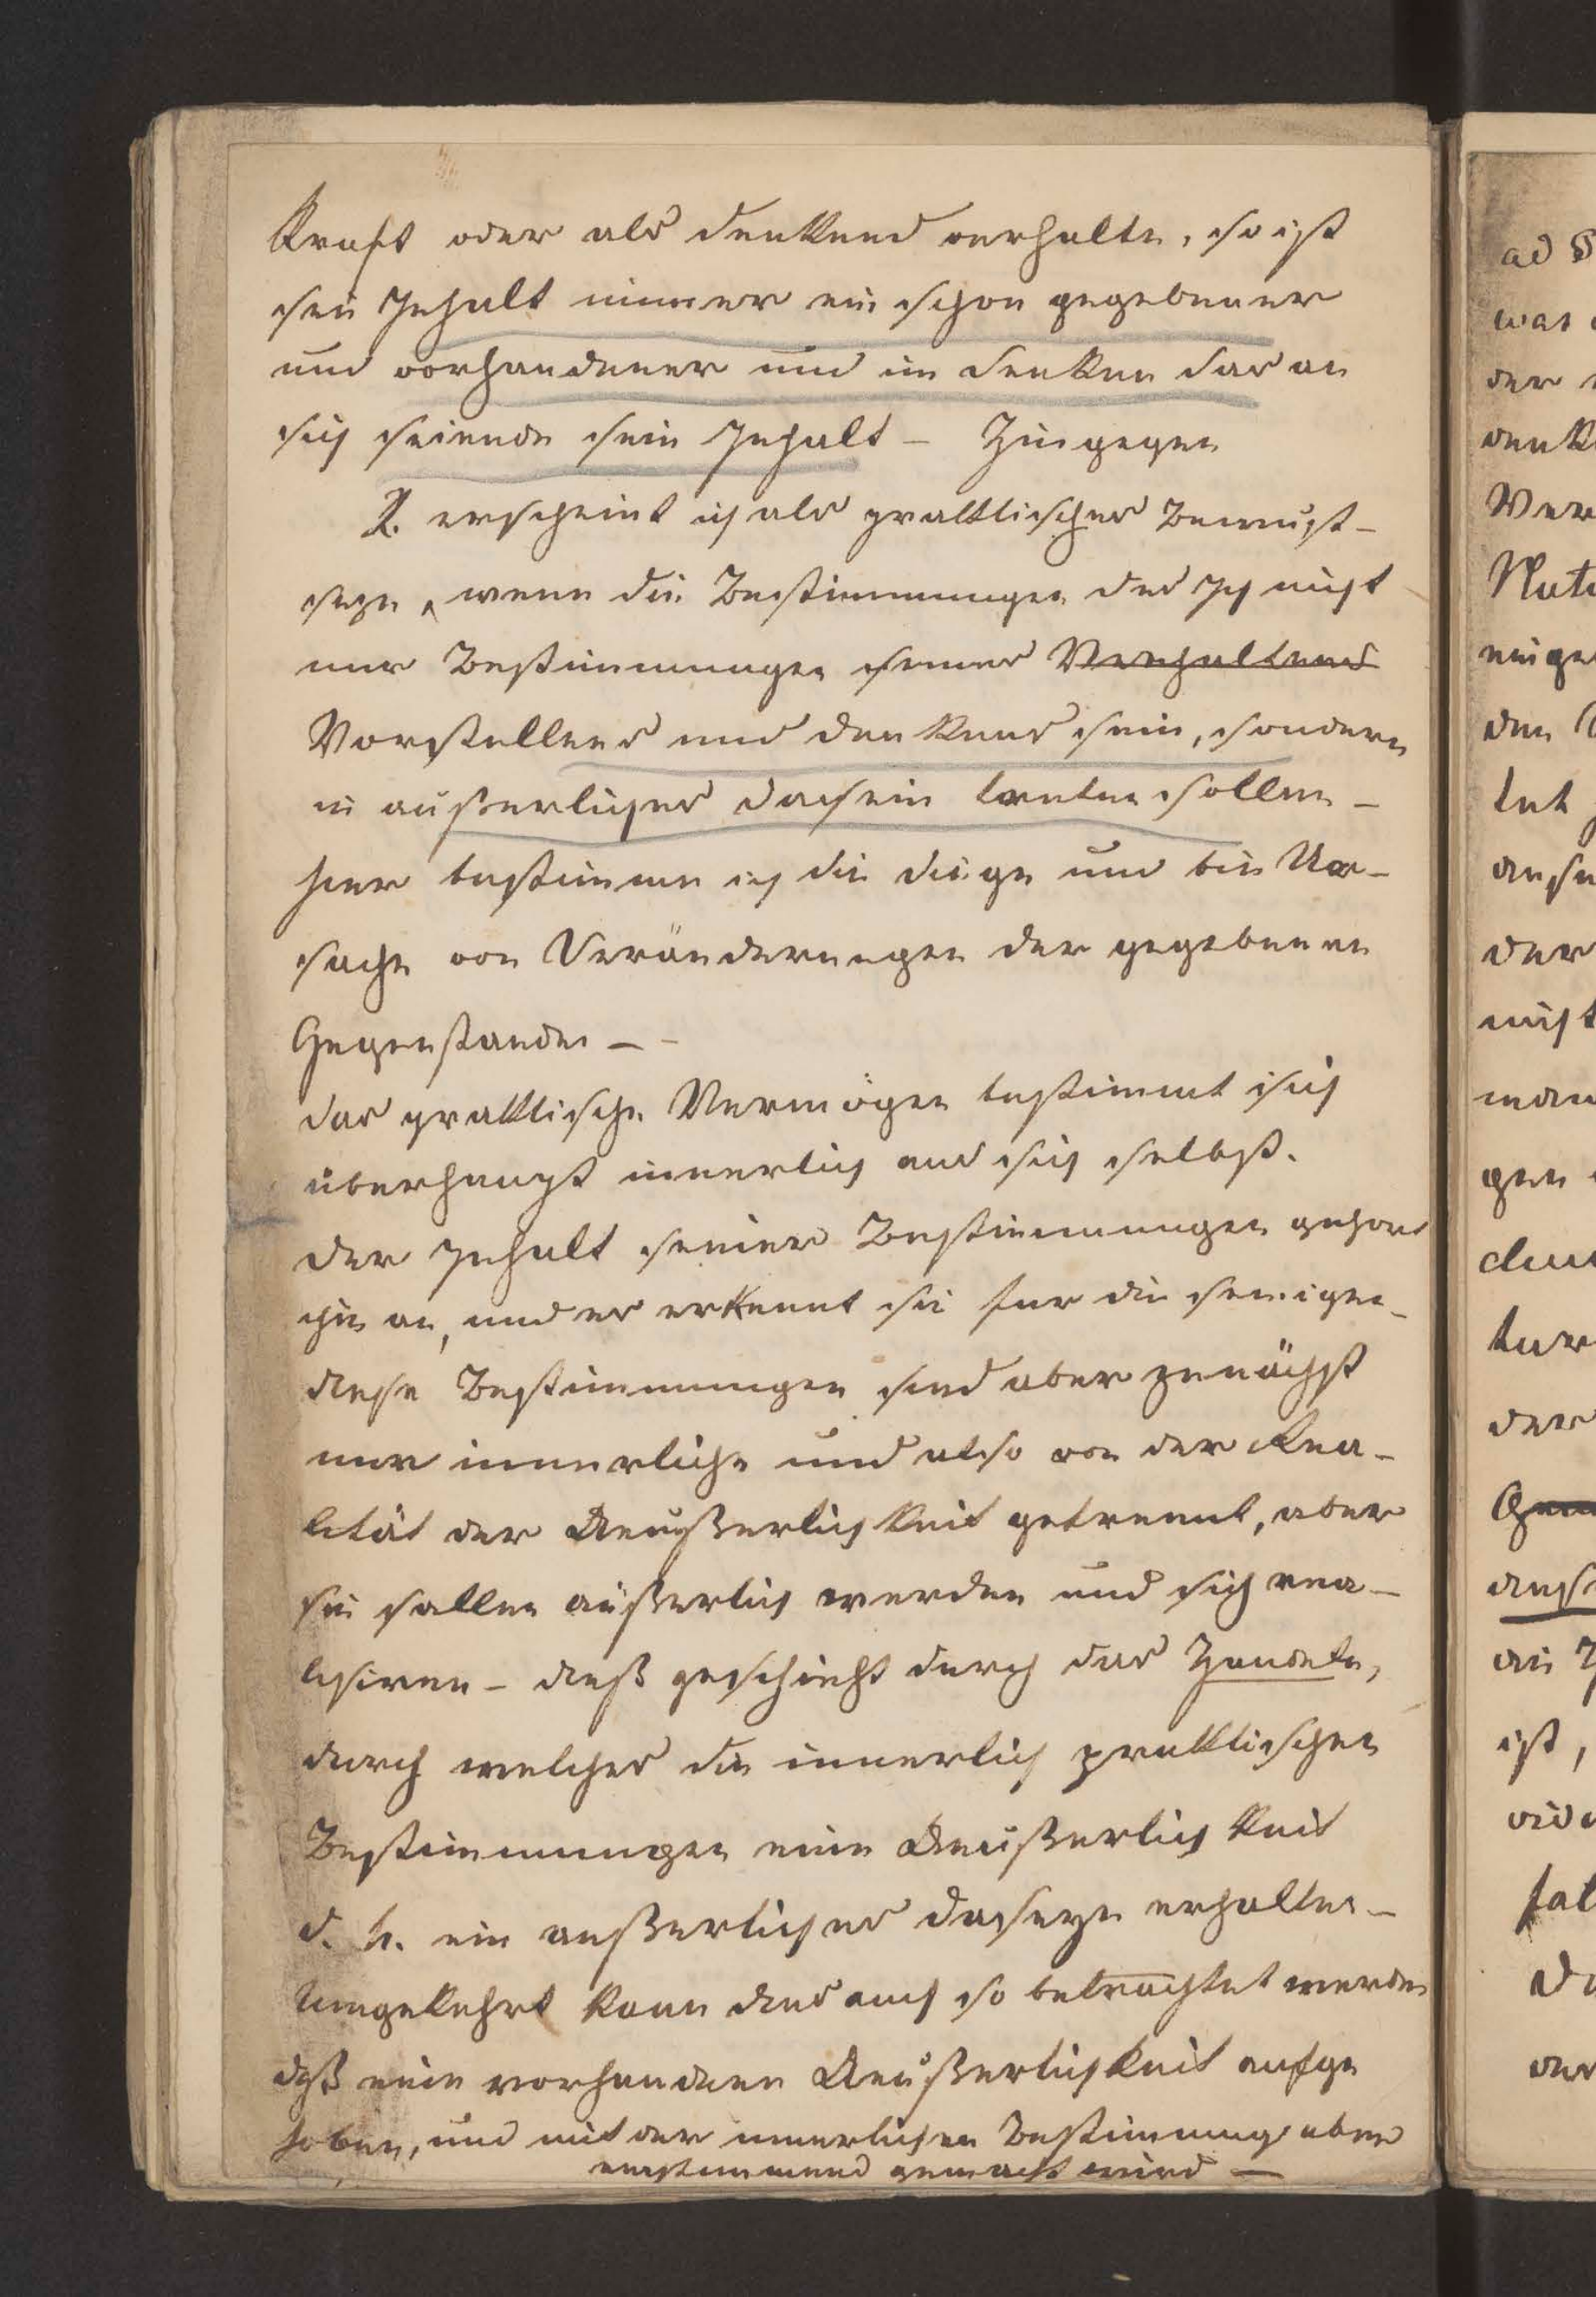 Kraft oder als denkend verhalte, so ist
sein Inhalt immer ein schon gegebener
und vorhandener und im denken das an
sich seiende sein Inhalt – Hingegen
2. erscheint ich als praktisches Bewust-
seyn, wenn die Bestimmungen des Ich nicht
nur Bestimmungen seines Verhaltens
Vorstellens und denkens sein, sondern
in außerliches dasein treten sollen –
hier bestimme ich die dinge und bin Ur-
sache von Veränderungen der gegebenen
Gegenstande –
das praktische Vermögen bestimmt sich
überhaupt innerlich aus sich selbst.
der Inhalt seiner Bestimmungen gehort
ihm an, und er erkennt sie fur die seinigen –
diese Bestimmungen sind aber zunächst
nur innerliche und also von der Rea-
lität der Aeußerlichkeit getrennt, aber
sie sollen äußerlich werden und sich rea-
lisiren – dieß geschieht durch das Handeln,
durch welches die innerlich praktischen
Bestimmungen eine Aeußerlichkeit
d. h. ein außerliches daseyn erhalten –
Umgekehrt kann dies auch so betrachtet werden
daß eine vorhandene Aeußerlichkeit aufge
hoben, und mit der innerlichen Bestimmung uber
einstimmend gemacht wird –
ad §
was
der
denk
Ver
Natu
einge
den
tet
anse
der
nicht
man
gen
der
ist,